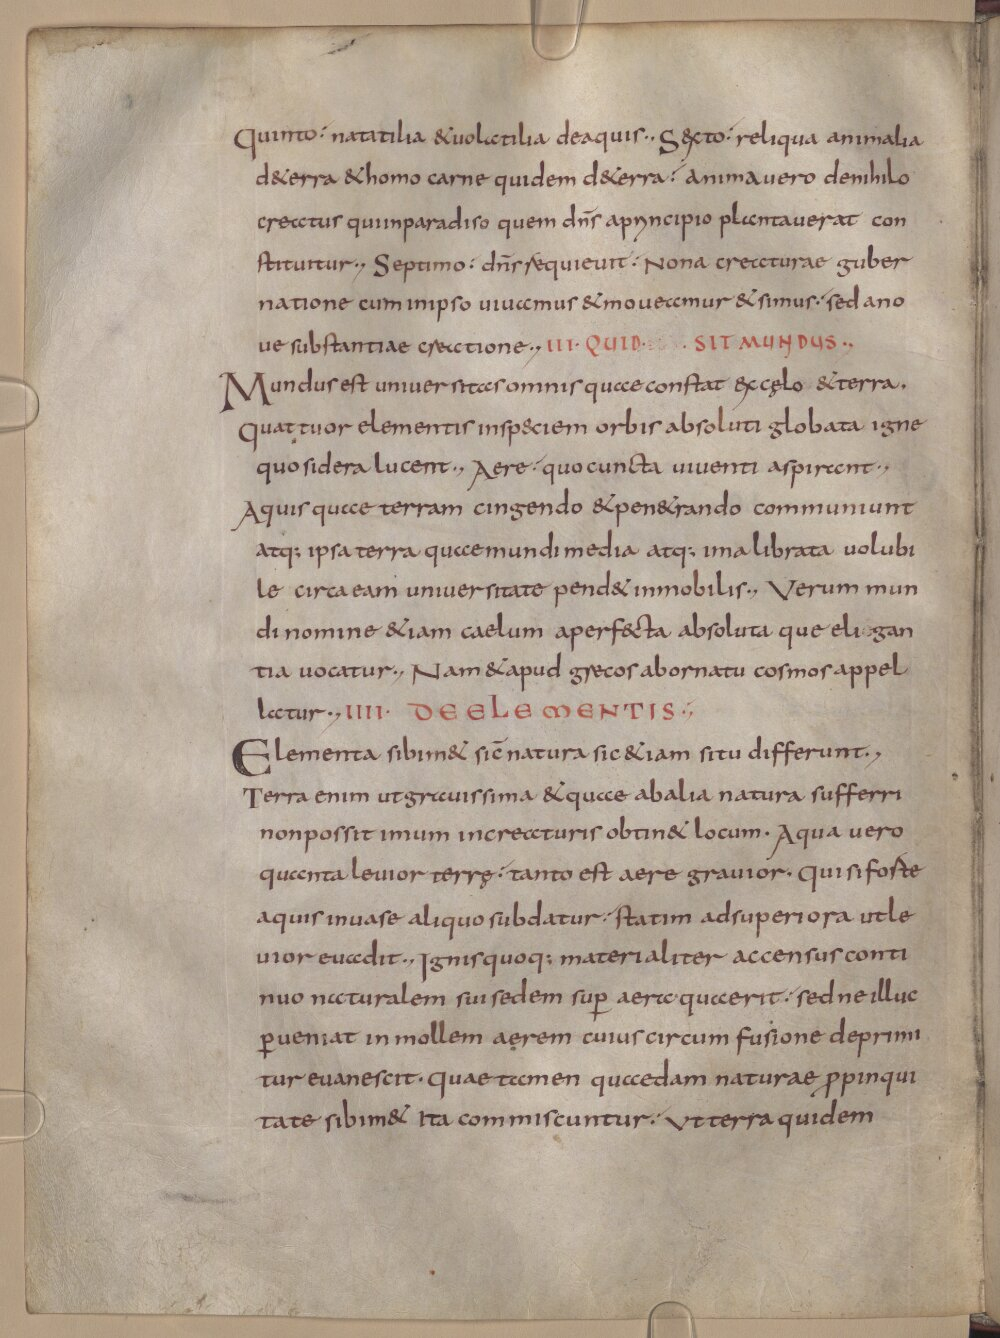 Quinto· natatilia &uolatilia deaquis·, S&xto· reliqua animalia
d&erra &homo carne quidem d&erra· animauero denihilo
creatus quiinparadiso quem dn̄s aprincipio plantauerat con
stituitur·, Septimo· dn̄s requieuit· Nona creaturae guber
natione cum inipso uiuamus &moueamur &simus· sed ano
ue substantiae creatione·, III· QUID· SIT MUNDUS·,
Mundus est uniuersitas omnis quae constat ex cęlo &terra.
Quattuor elementis insp&ciem orbis absoluti globata igne
quo sidera lucent·, Aere· quo cuncta uiuenti aspirant·,
Aquis quae terram cingendo &pen&rando communiunt
atq; ipsa terra quae mundi media atq; ima librata uolubi
le circa eam uniuersitate pend& inmobilis·, Verum mun
di nomine &iam caelum aperf&cta absoluta que eligan
tia uocatur·, Nam &apud grecos abornatu cosmos appel
latur·, IIII· DE ELEMENTIS·,
Elementa sibim& sic̄ natura sic &iam situ differunt·,
Terra enim utgrauissima &quae abalia natura sufferri
nonpossit imum increaturis obtin& locum· Aqua uero
quanta leuior terrę· tanto est aere grauior· Qui si forte
aquis inuase aliquo subdatur· statim adsuperiora utle
uior euadit·, Ignis quoq; materialiter accensus conti
nuo naturalem sui sedem sup̲ aera quaerit· sed ne illuc
p̲ueniat in mollem aerem cuius circum fusione deprimi
tur euanescit· Quae tamen quaedam naturae ꝓpinqui
tate sibim& Ita commiscuntur· Ut terra quidem